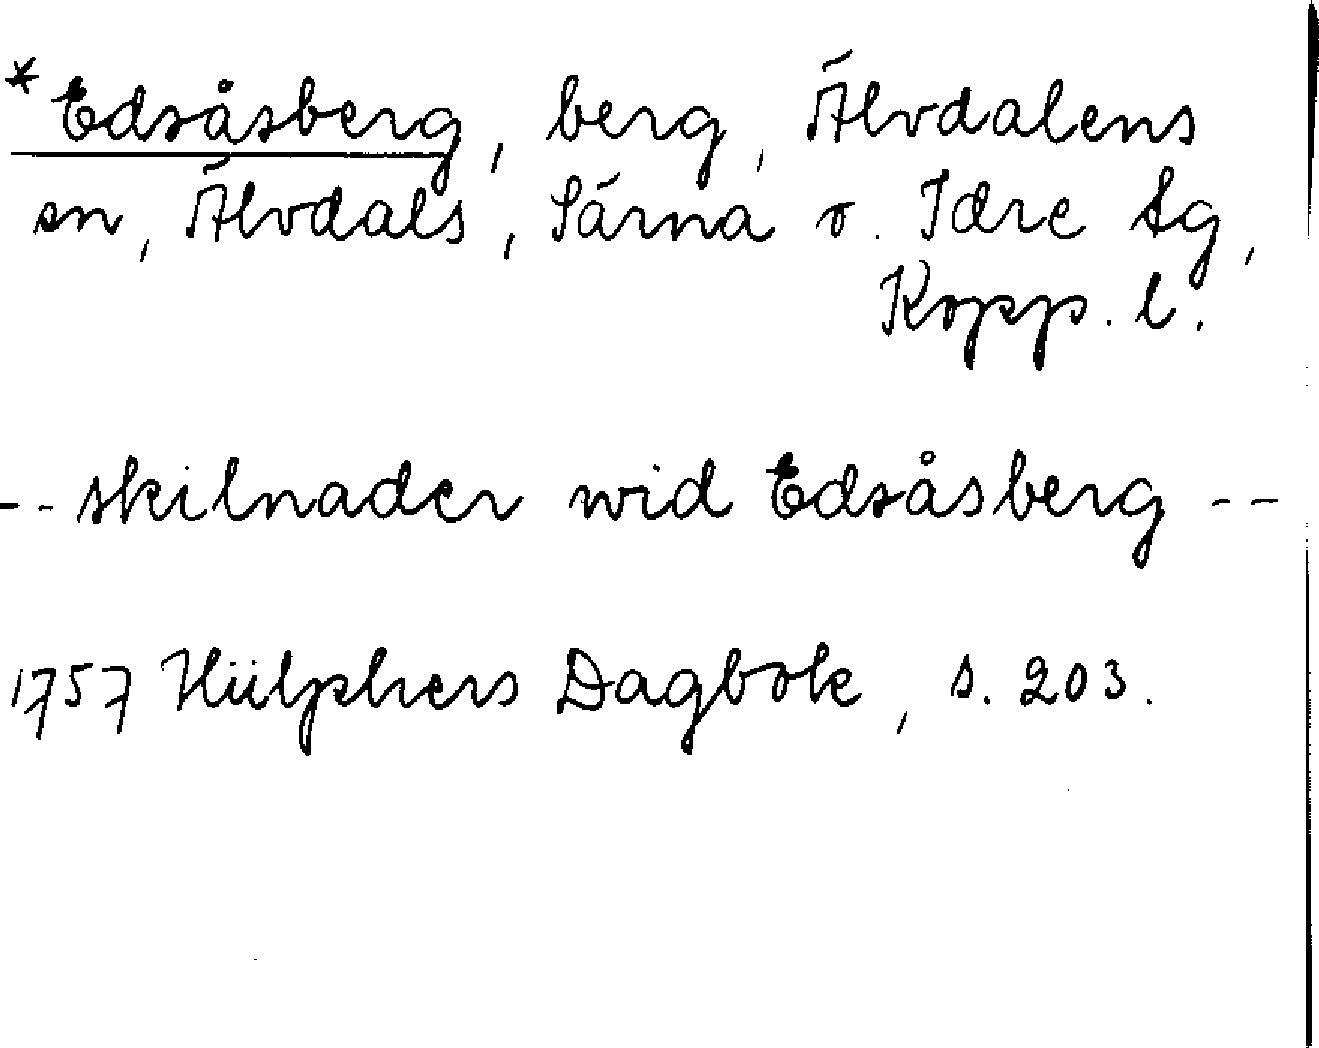 *Edsåsberg, berg, Älvdalens
sn, Älvdals, Särna o. Idre tg,
Kopp. l.
-- skilnader wid Edsåsberg --
1757 Hülphers Dagbok, s. 203.